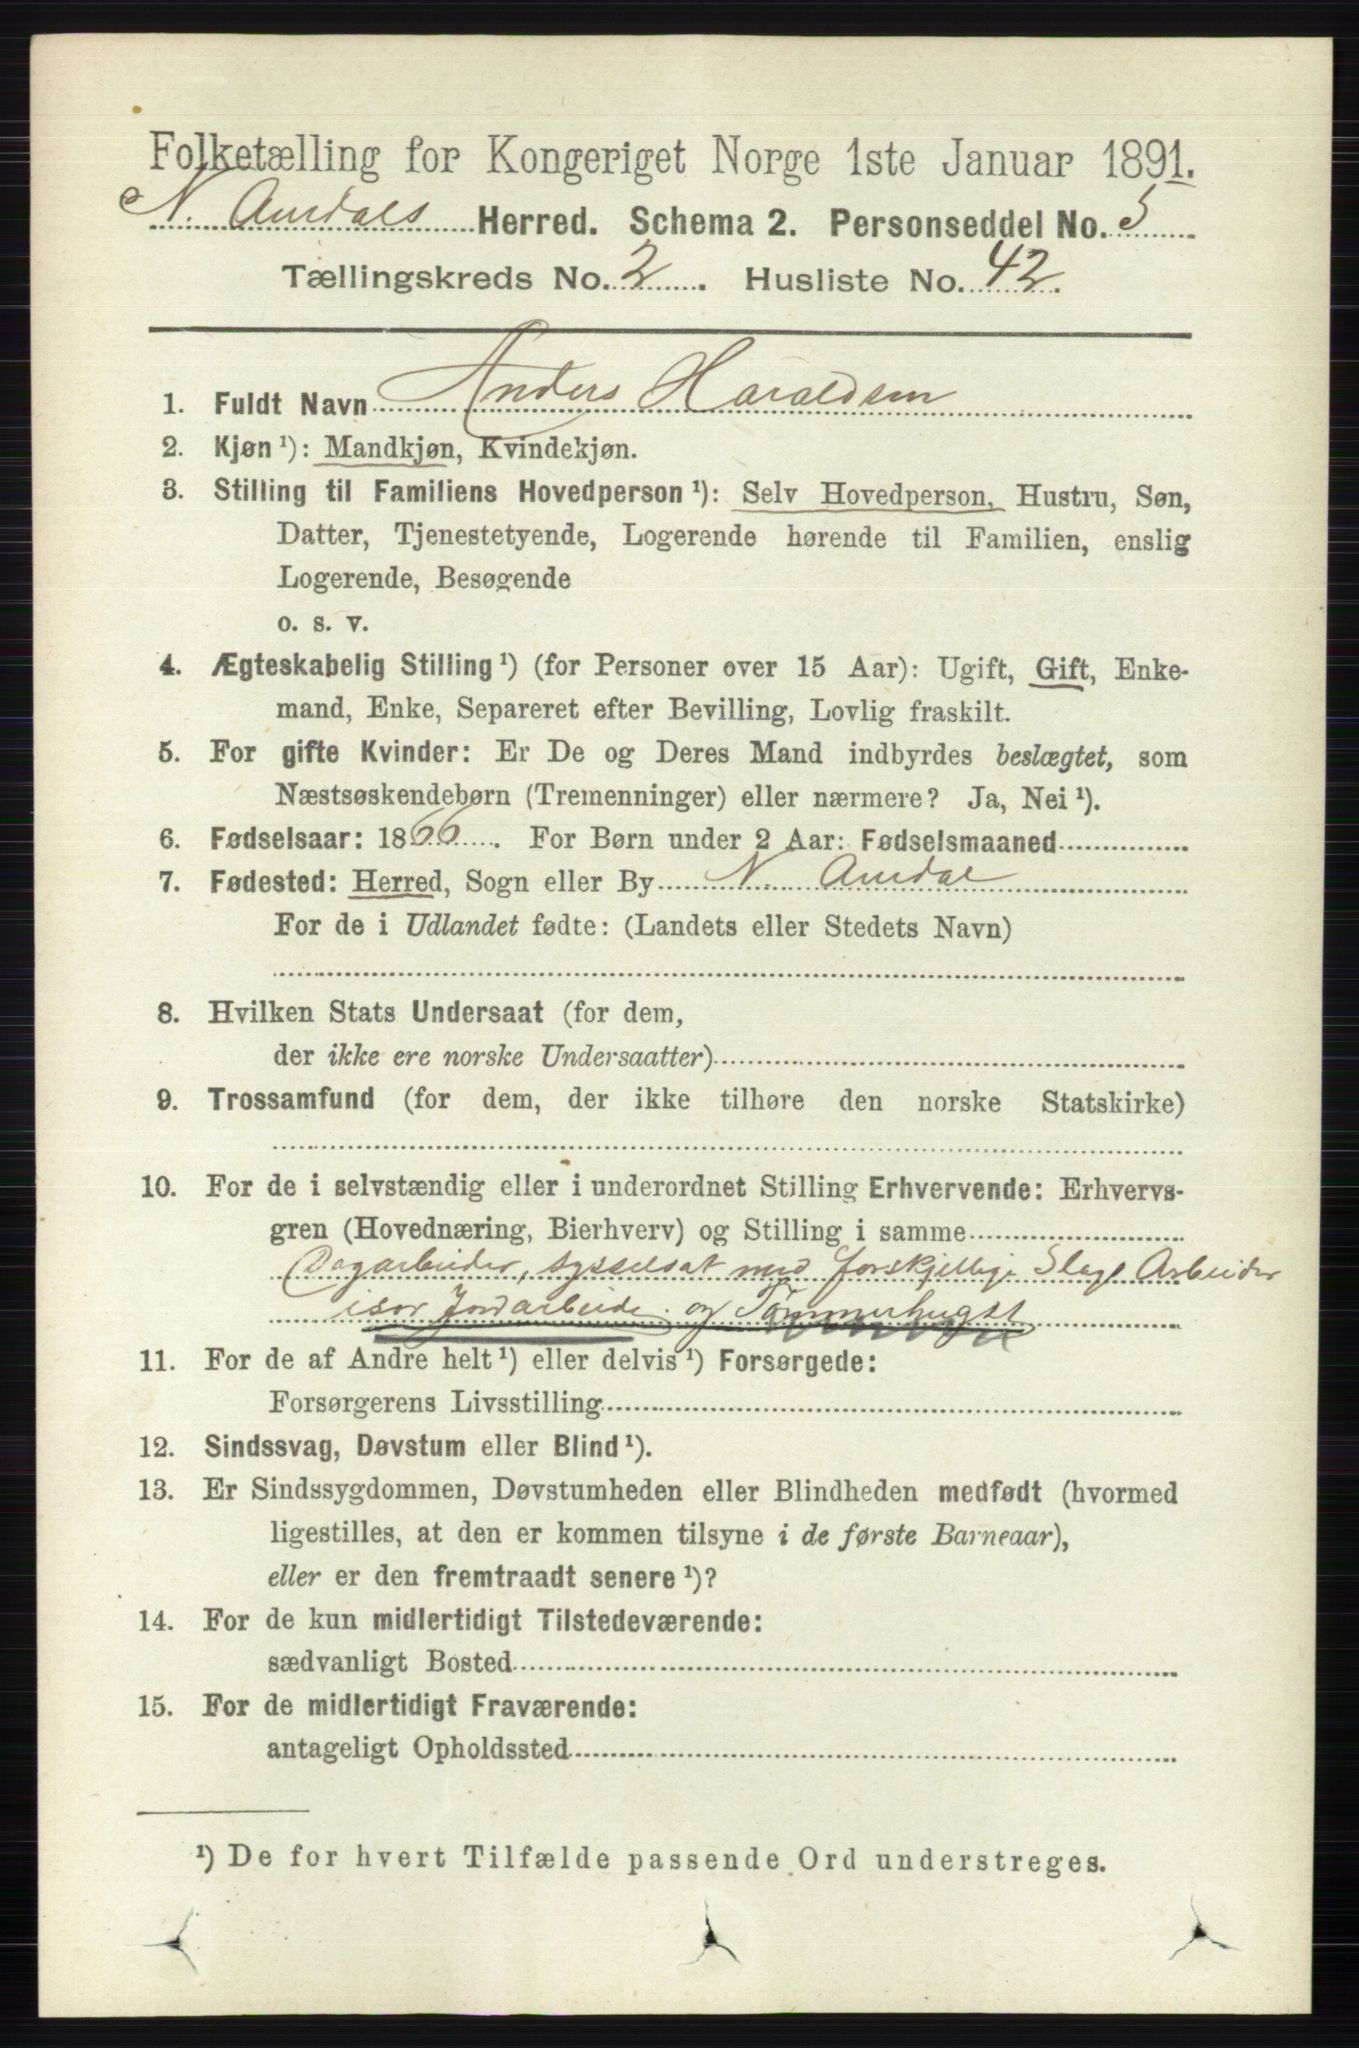 Folketælling for Kongeriget Norge 1ste Januar 1891.
N. Aurdals Herred. Schema 2. Personseddel No. 5
Tællingskreds No. 2. Husliste No. 42.
1. Fuldt Navn Anders Haraldsen
2. Kjøn ¹): Mandkjøn, Kvindekjøn.
3. Stilling til Familiens Hovedperson ¹): Selv Hovedperson, Hustru, Søn,
Datter, Tjenestetyende, Logerende hørende til Familien, enslig
Logerende, Besøgende
o. s. v.
4. Ægteskabelig Stilling ¹) (for Personer over 15 Aar): Ugift, Gift, Enke-
mand, Enke, Separeret efter Bevilling, Lovlig fraskilt.
5. For gifte Kvinder: Er De og Deres Mand indbyrdes beslægtet, som
Næstsøskendebørn (Tremenninger) eller nærmere? Ja, Nei ¹).
6. Fødselsaar: 1866. For Børn under 2 Aar: Fødselsmaaned
7. Fødested: Herred, Sogn eller By N. Aurdal
For de i Udlandet fødte: (Landets eller Stedets Navn)
8. Hvilken Stats Undersaat (for dem,
der ikke ere norske Undersaatter)
9. Trossamfund (for dem, der ikke tilhøre den norske Statskirke)
10. For de i selvstændig eller i underordnet Stilling Erhvervende: Erhvervs-
gren (Hovednæring, Bierhverv) og Stilling i samme
Dagarbeider, sysselsat med forskjellige Slags Arbeider
især Jordarbeide og Tømmerhugst
11. For de af Andre helt ¹) eller delvis ¹) Forsørgede:
Forsørgerens Livsstilling
12. Sindssvag, Døvstum eller Blind ¹).
13. Er Sindssygdommen, Døvstumheden eller Blindheden medfødt (hvormed
ligestilles, at den er kommen tilsyne i de første Barneaar),
eller er den fremtraadt senere ¹)?
14. For de kun midlertidigt Tilstedeværende:
sædvanligt Bosted
15. For de midlertidigt Fraværende:
antageligt Opholdssted
¹) De for hvert Tilfælde passende Ord understreges.